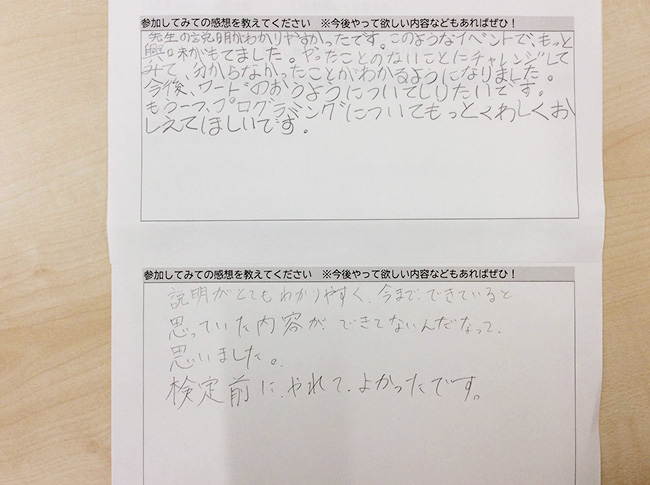 参加してみての感想を教えてください ※今後やって欲しい内容などもあればぜひ！
先生の説明がわかりやすかったです。このようなイベントで、もっと
興味がもてました。やったことのないことにチャレンジして
みて、分からなかったことがわかるようになりました。
今後、ワードのおうようについてしりたいです。
もう一つ、プログラミングについてもっとくわしくお
しえてほしいです。
参加してみての感想を教えてください ※今後やって欲しい内容などもあればぜひ！
説明がとてもわかりやすく、今まで、できていると
思っていた内容が、できてないんだなって、
思いました。
検定前に、やれて、よかったです。